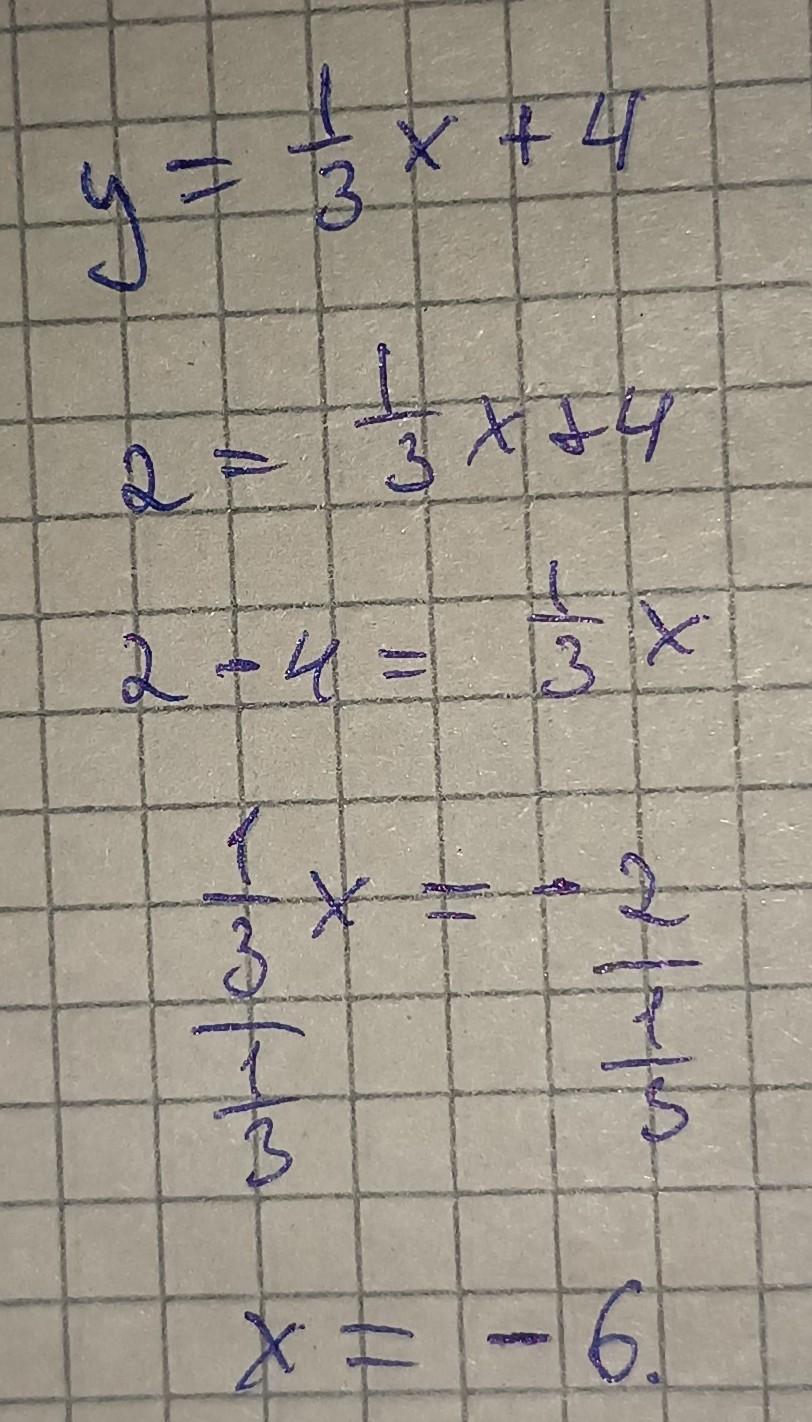 y = 1/3 x + 4
2 = 1/3 x + 4
2 - 4 = 1/3 x
(1/3 x)/(1/3) = - 2/(1/3)
x = - 6.